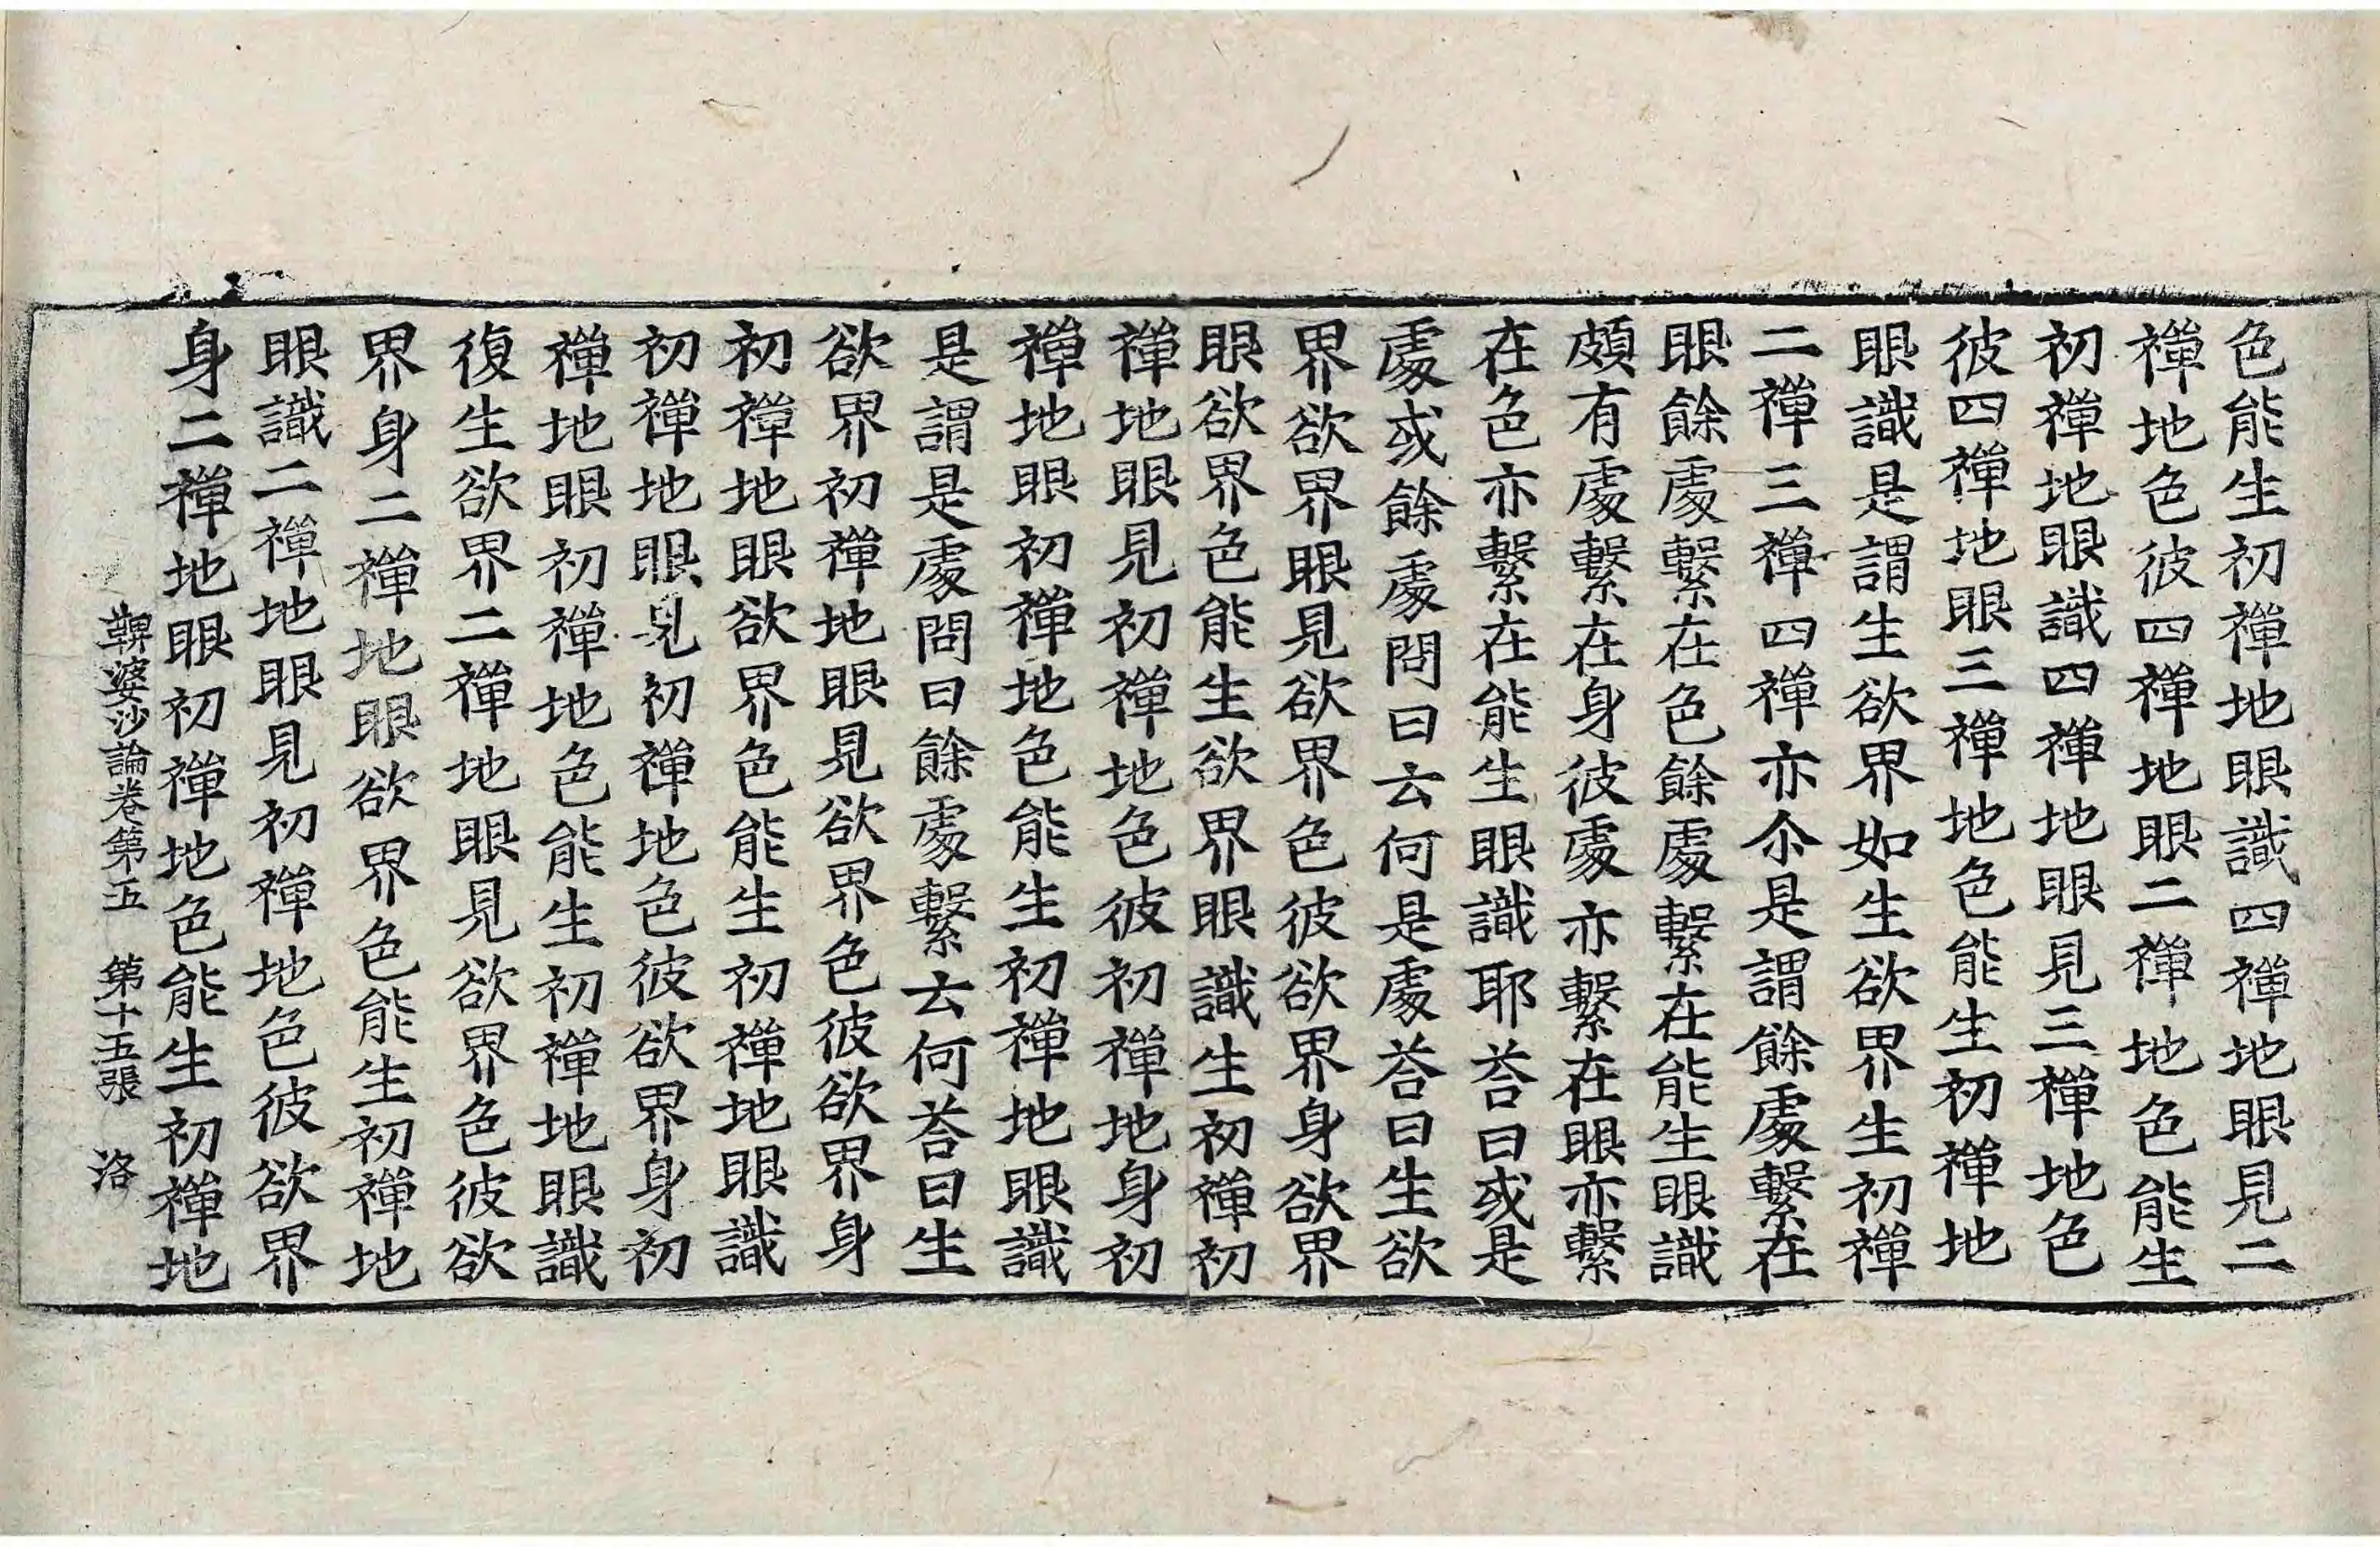 色能生初禪地眼識四禪地眼見二
禪地色彼四禪地眼二禪地色能生
初禪地眼識四禪地眼見三禪地色
彼四禪地眼三禪地色能生初禪地
眼識是謂生欲界如生欲界生初禪
二禪三禪四禪亦尒是謂餘處繫在
眼餘處繫在色餘處繫在能生眼識
頗有處繫在身彼處亦繫在眼亦繫
在色亦繫在能生眼識耶荅曰或是
處或餘處問曰云何是處荅曰生欲
界欲界眼見欲界色彼欲界身欲界
眼欲界色能生欲界眼識生初禪初
禪地眼見初禪地色彼初禪地身初
禪地眼初禪地色能生初禪地眼識
是謂是處問曰餘處繫云何荅曰生
欲界初禪地眼見欲界色彼欲界身
初禪地眼欲界色能生初禪地眼識
初禪地眼見初禪地色彼欲界身初
禪地眼初禪地色能生初禪地眼識
復生欲界二禪地眼見欲界色彼欲
界身二禪地眼欲界色能生初禪地
眼識二禪地眼見初禪地色彼欲界
身二禪地眼初禪地色能生初禪地
鞞婆沙論卷第五 第十五張 洛